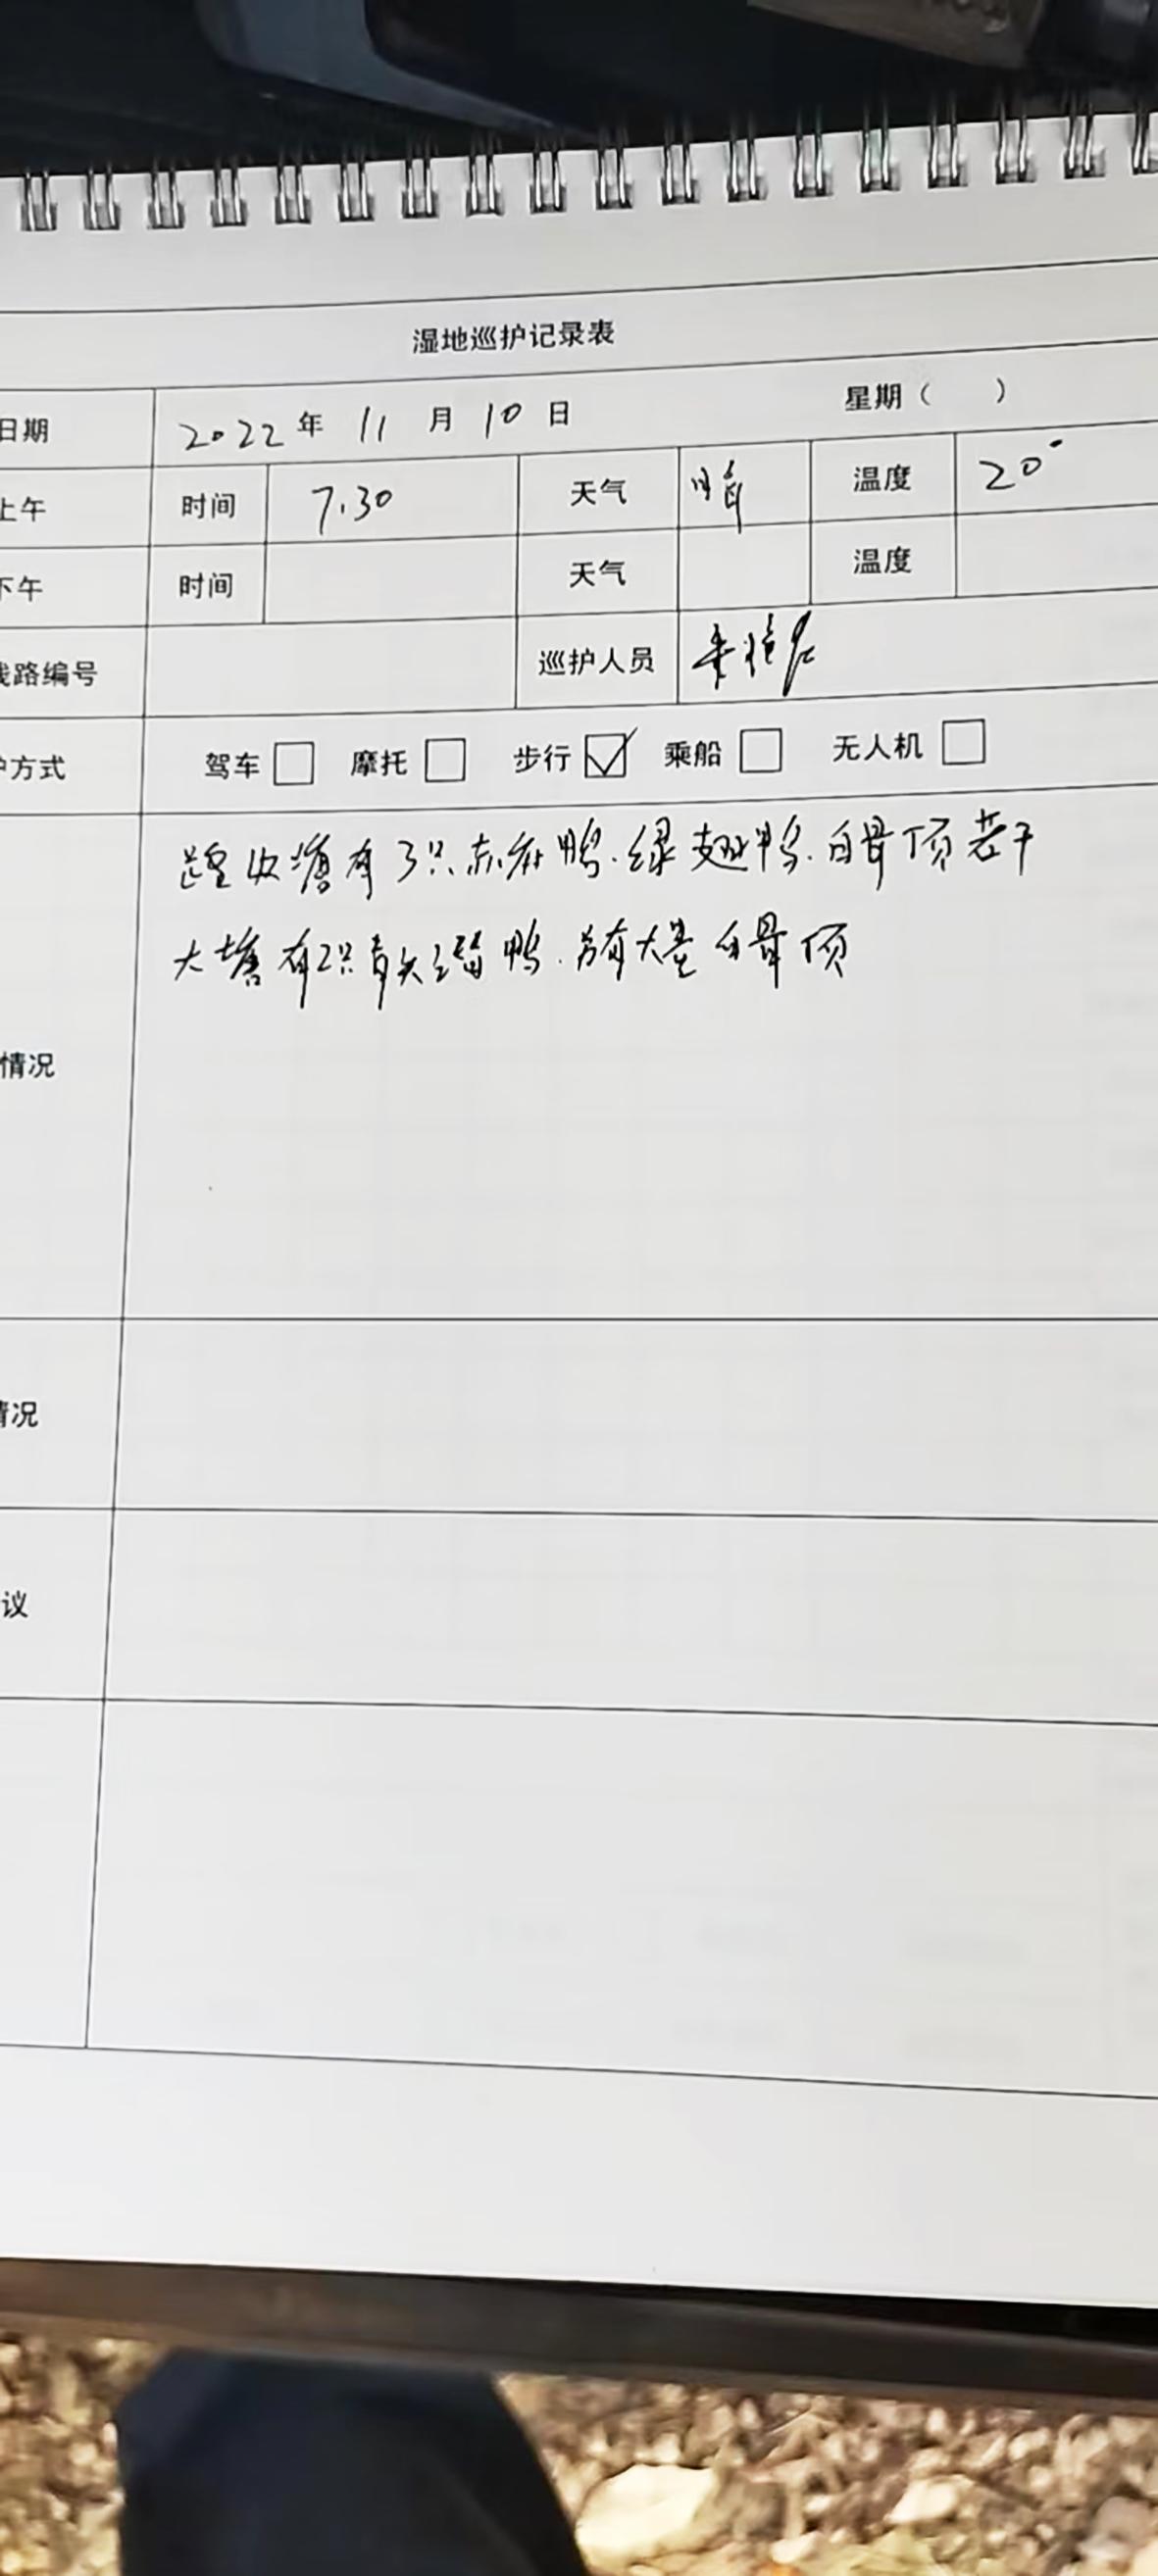 湿地巡护记录表
日期 2022年 11月 10日 星期（ ）
上午 时间 7.30 天气 晴 温度 20°
下午 时间 天气 温度
线路编号 巡护人员
护方式 驾车 摩托 步行 ☑ 乘船 无人机
塘有3只赤麻鸭.绿翅鸭.白骨顶若干
大塘有2只青头潜鸭.另有大量白骨顶
情况
情况
议